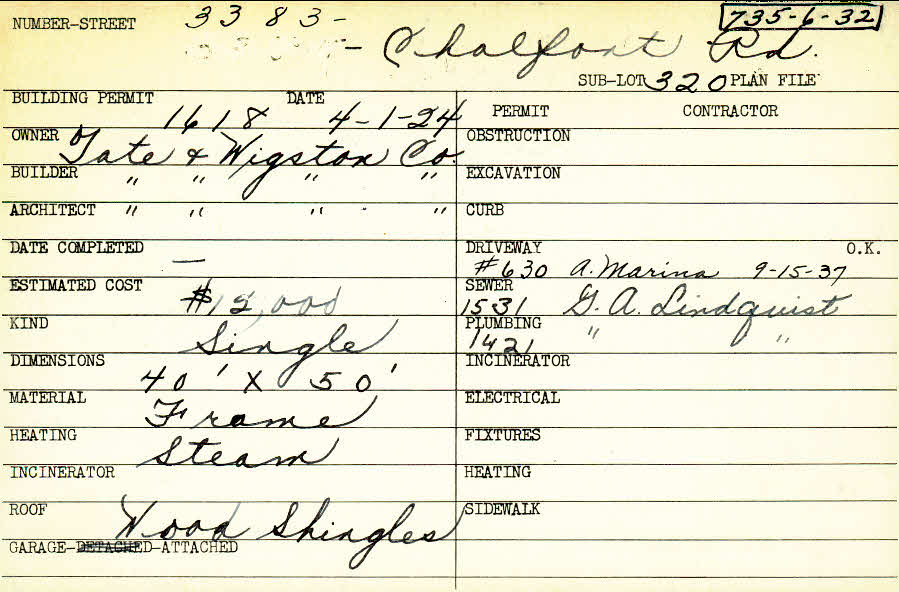 NUMBER-STREET 3383- 735-6-32
- Chalfont Rd.
SUB-LOT 320 PLAN FILE
BUILDING PERMIT 1618 DATE 4-1-24
PERMIT CONTRACTOR
OWNER Tate & Wigston Co.
OBSTRUCTION
BUILDER " " " "
EXCAVATION
ARCHITECT " " " "
CURB
DATE COMPLETED —
DRIVEWAY O.K.
#630 A. Marina 9-15-37
ESTIMATED COST $12,000
SEWER
1531 G. A. Lindquist
KIND Single
PLUMBING " "
1421
DIMENSIONS 40' X 50'
INCINERATOR
MATERIAL Frame
ELECTRICAL
HEATING Steam
FIXTURES
INCINERATOR
HEATING
ROOF Wood Shingles
SIDEWALK
GARAGE-DETACHED-ATTACHED